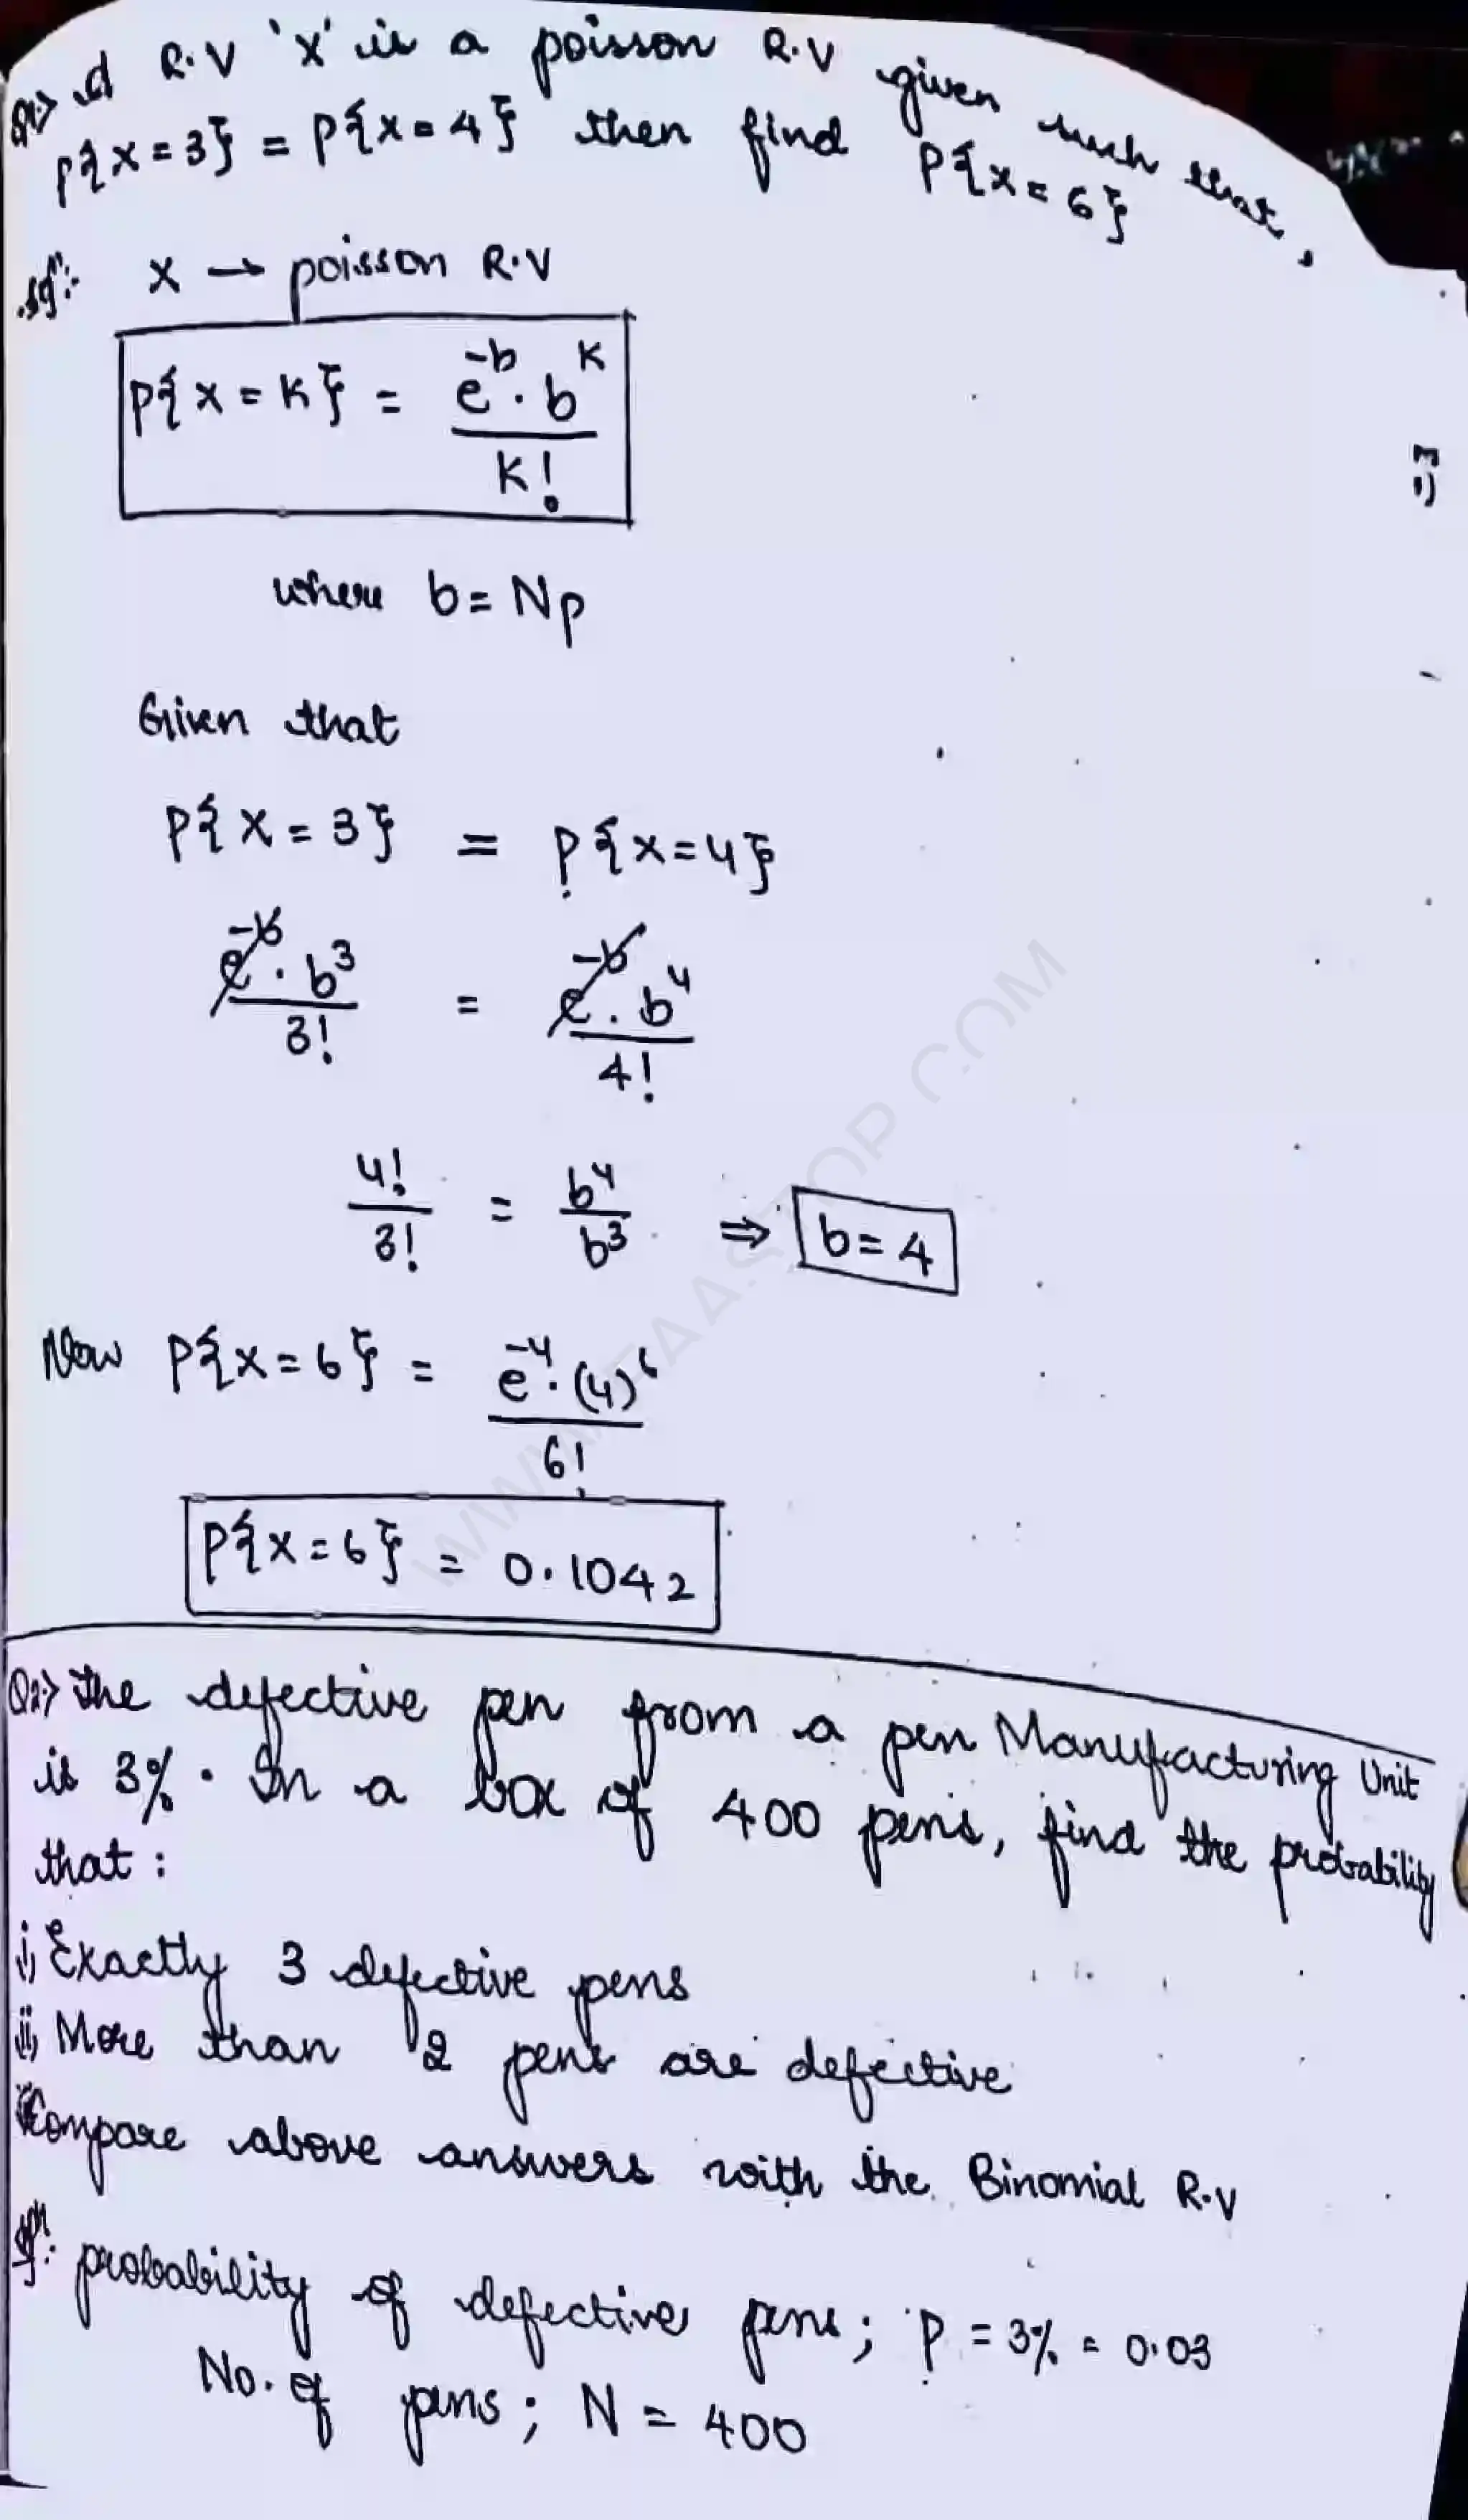 Q1.> A R.V 'X' is a poisson R.V given such that,
P{X=3} = P{X=4} then find P{X=6}
sol: X → poisson R.V
P{X=K} = e^-b . b^K / K!
where b = Np
Given that
P{X=3} = P{X=4}
e^-b . b^3 / 3! = e^-b . b^4 / 4!
4! / 3! = b^4 / b^3 ⇒ b = 4
Now P{X=6} = e^-4 . (4)^6 / 6!
P{X=6} = 0.1042
Q2.> The defective pen from a pen Manufacturing Unit
is 3%. In a box of 400 pens, find the probability
that:
i) Exactly 3 defective pens
ii) More than 2 pens are defective
Compare above answers with the Binomial R.V
sol: probability of defective pens; p = 3% = 0.03
No. of pens; N = 400
WWW.FAASTOP.COM